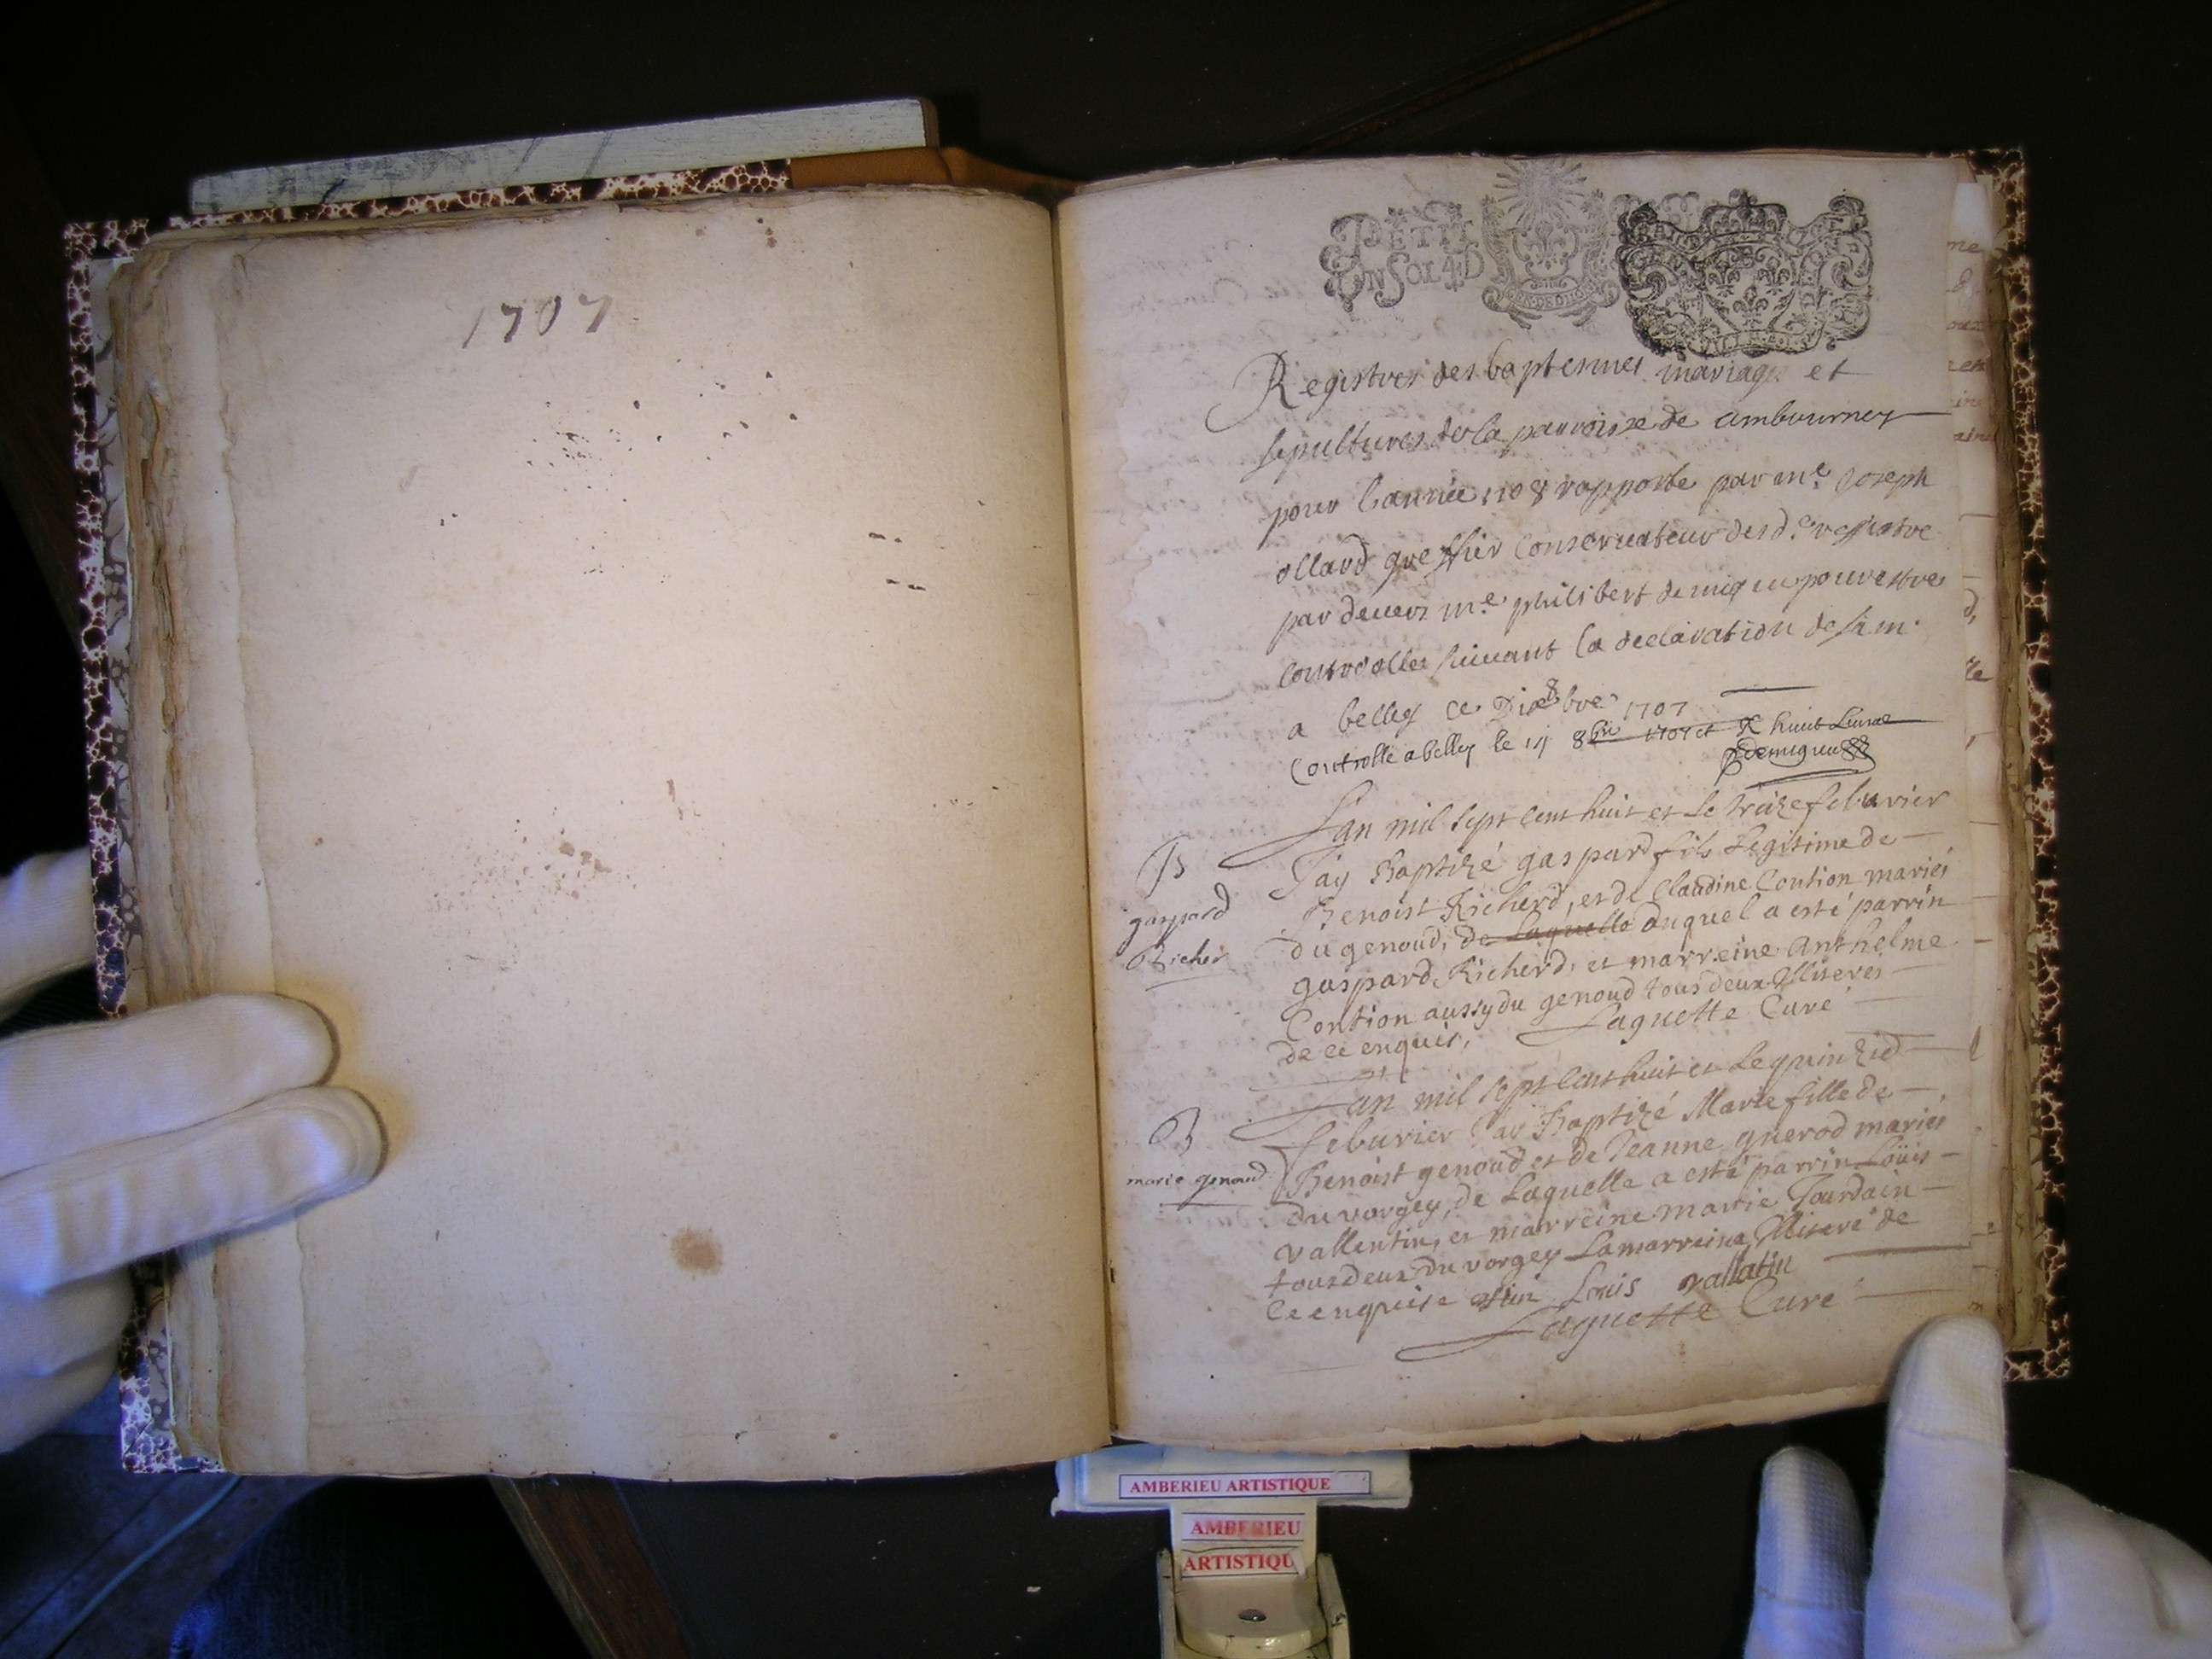 1707
PETIT
UN SOL 4D
GEN. DE DIION
Registres des baptesmes mariage et
sepultures de la parroisse de ambournex
pour l'année 1708 rapporte par me Joseph
ollard greffier conservateur desd. registre
par devers me philibert demigieu pour estre
controolles suivant la declaration de sa m.
a belley ce Dix 8bre 1707
Controlle a belley le 14 8bre 1707 et R huit Livres
Demigieu
B
gaspard
Richer
L'an mil sept cent huit et le treize feburier
J'ay Baptizé gaspard fils Legitime de
Benoist Richerd, et de Claudine Contion mariés
du genoud, de Laquelle duquel a esté parrin
gaspard Richerd, et marreine anthelme
Contion aussy du genoud tous deux Illiteres
de ce enquis, Laguette Curé
B
marie genoud
L'an mil sept cent huit et le quinzie
feburier J'ay Baptizé Marie fille de
Benoist genoud et de Jeanne guerod mariés
du vorgey, de Laquelle a esté parrin Loüis
vallentin, et marreine marie Jourdain
tous deux du vorgey La marreine Illiteré de
ce enquise Louis vallatin
Laguette Curé
AMBERIEU ARTISTIQUE
AMBERIEU
ARTISTIQU